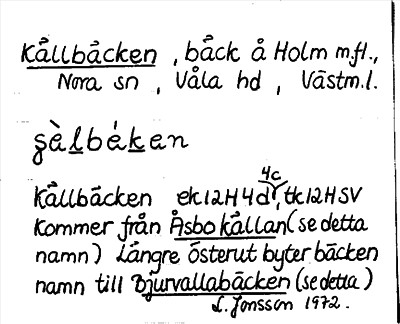 Källbäcken , bäck å Holm m.fl.,
Nora sn , Våla hd , Västm.l.
şὲlbékɐn
4c
Källbäcken ek 12H4d, tk 12HSV
kommer från Åsbokällan (se detta
namn) Längre österut byter bäcken
namn till Bjurvallabäcken (se detta)
L. Jonsson 1972.